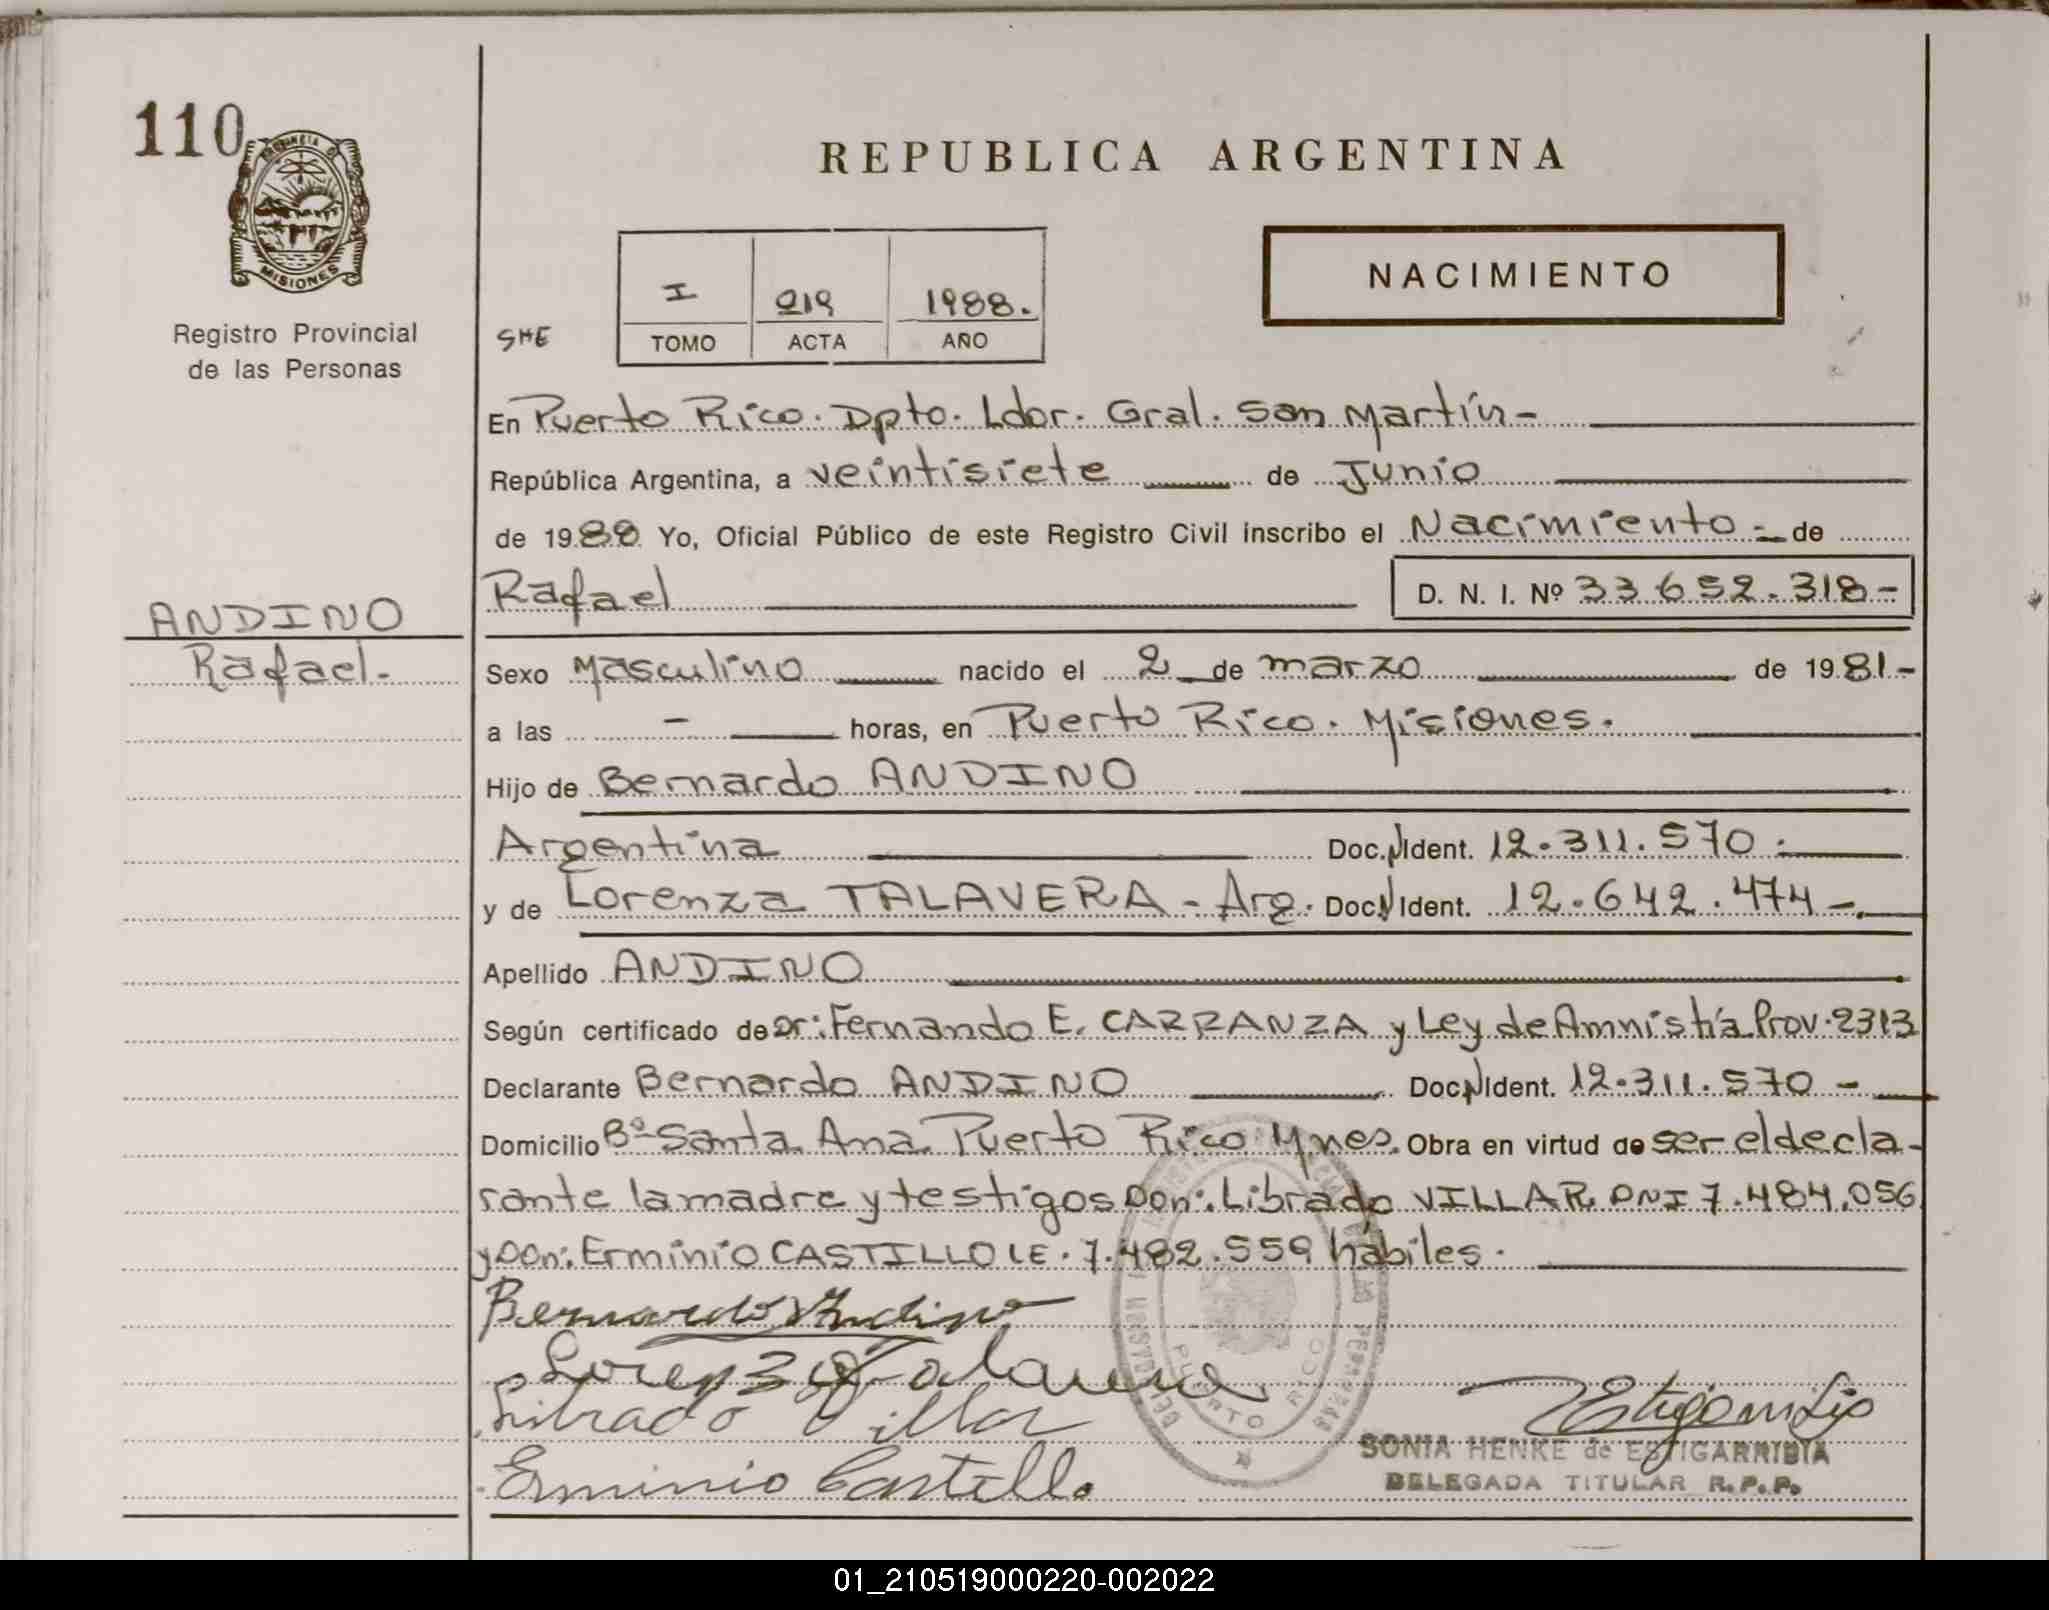 110
PROVINCIA DE
MISIONES
Registro Provincial
de las Personas
REPUBLICA ARGENTINA
I 219 1988.
TOMO ACTA AÑO
NACIMIENTO
SHE
En Puerto Rico. Dpto. Ldor. Gral. San Martín-
República Argentina, a veintisiete de Junio
de 1988 Yo, Oficial Público de este Registro Civil inscribo el Nacimiento - de
Rafael D. N. I. Nº 33.652.318-
ANDINO
Rafael.
Sexo Masculino nacido el 2 de marzo de 1981-
a las - horas, en Puerto Rico. Misiones.
Hijo de Bernardo ANDINO
Argentina Doc.N Ident. 12.311.570.
y de Lorenza TALAVERA - Arg. Doc.N Ident. 12.642.474-.
Apellido ANDINO
Según certificado de Dr: Fernando E. CARRANZA y Ley de Amnistía Prov. 2313
Declarante Bernardo ANDINO Doc.N Ident. 12.311.570-
Domicilio Bº Santa Ana. Puerto Rico Mnes. Obra en virtud de ser el decla-
rante la madre y testigos Don: Librado VILLAR DNI 7.484.056
y Don: Erminio CASTILLO LE. 7.482.559 habiles.
Bernardo Andino
Lorenza Talavera
Librado Villar
Erminio Castillo
PUERTO RICO
SONIA HENKE de ESTIGARRIBIA
DELEGADA TITULAR R.P.P.
01_210519000220-002022